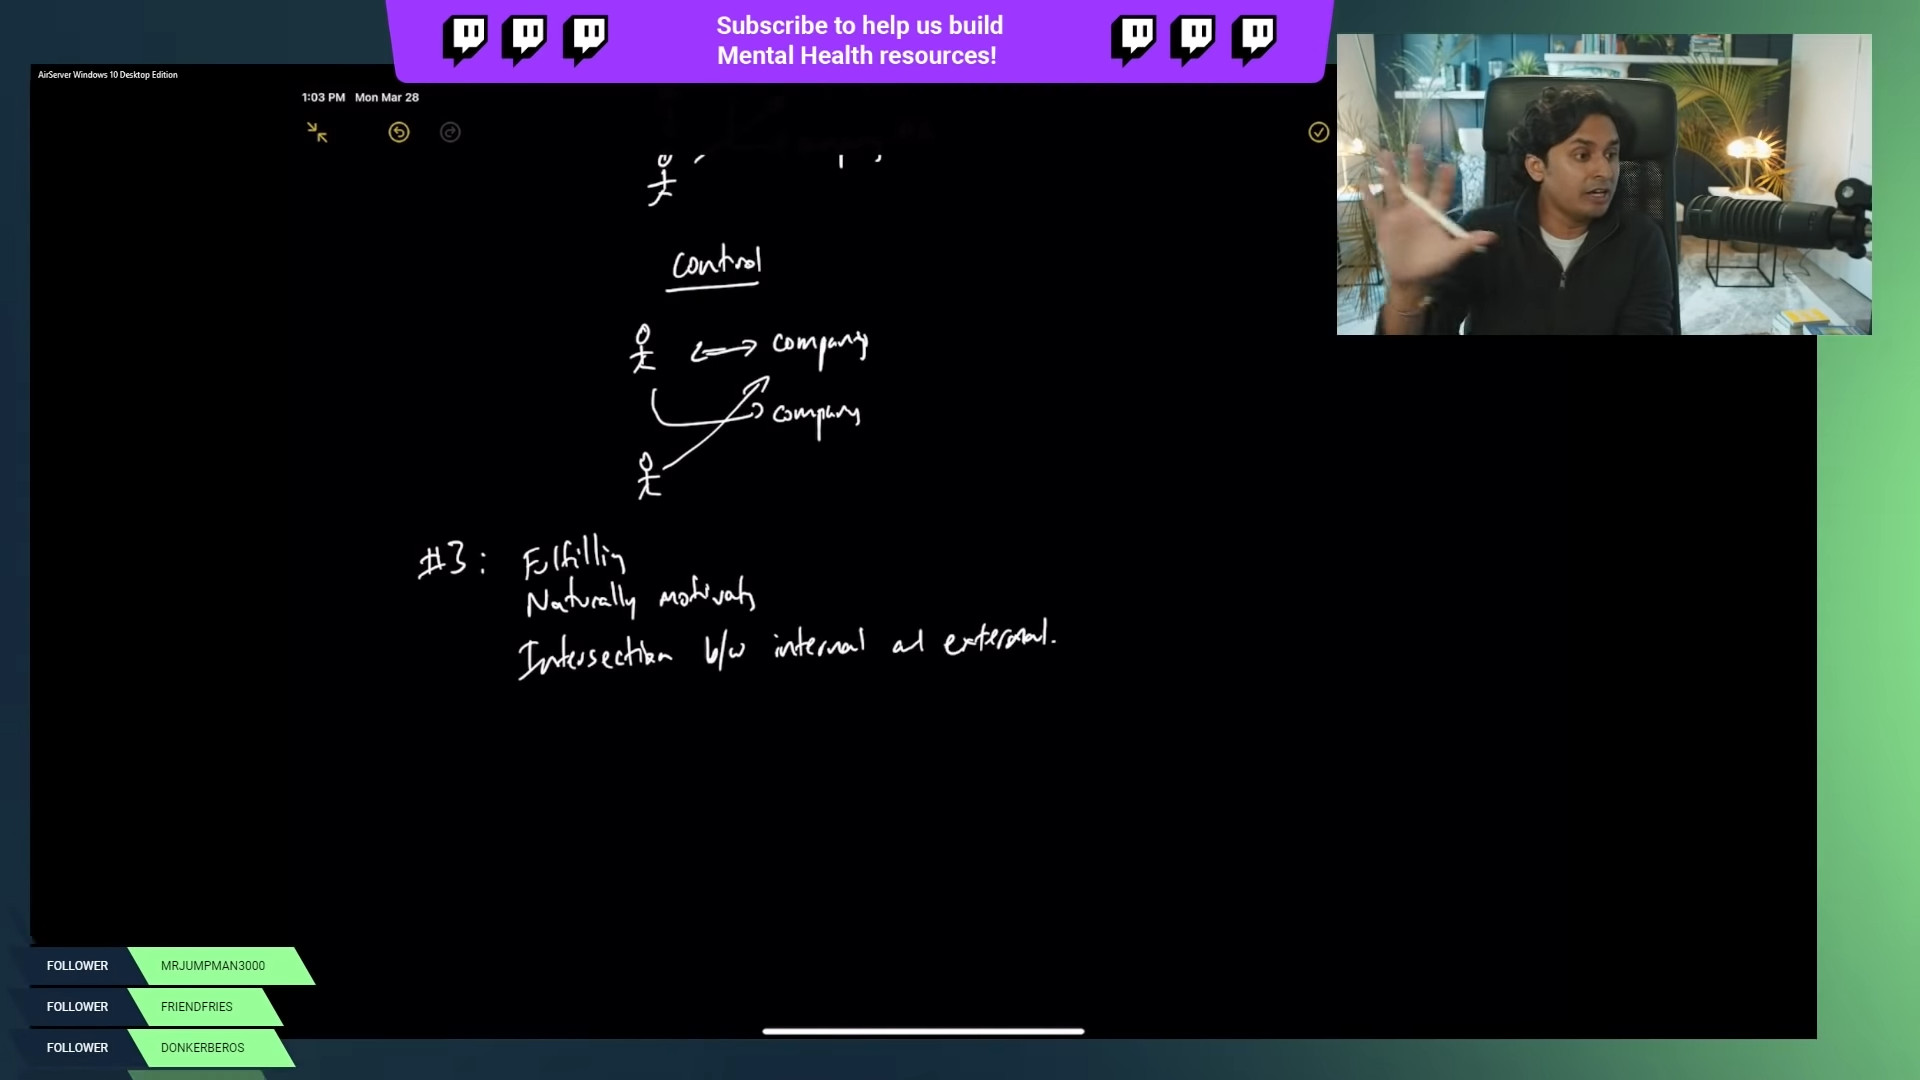 Subscribe to help us build
Mental Health resources!
AirServer Windows 10 Desktop Edition
1:03 PM Mon Mar 28
control
company
company
#3: Fulfilling
Naturally motivating
Intersection b/w internal ad external.
FOLLOWER MRJUMPMAN3000
FOLLOWER FRIENDFRIES
FOLLOWER DONKERBEROS